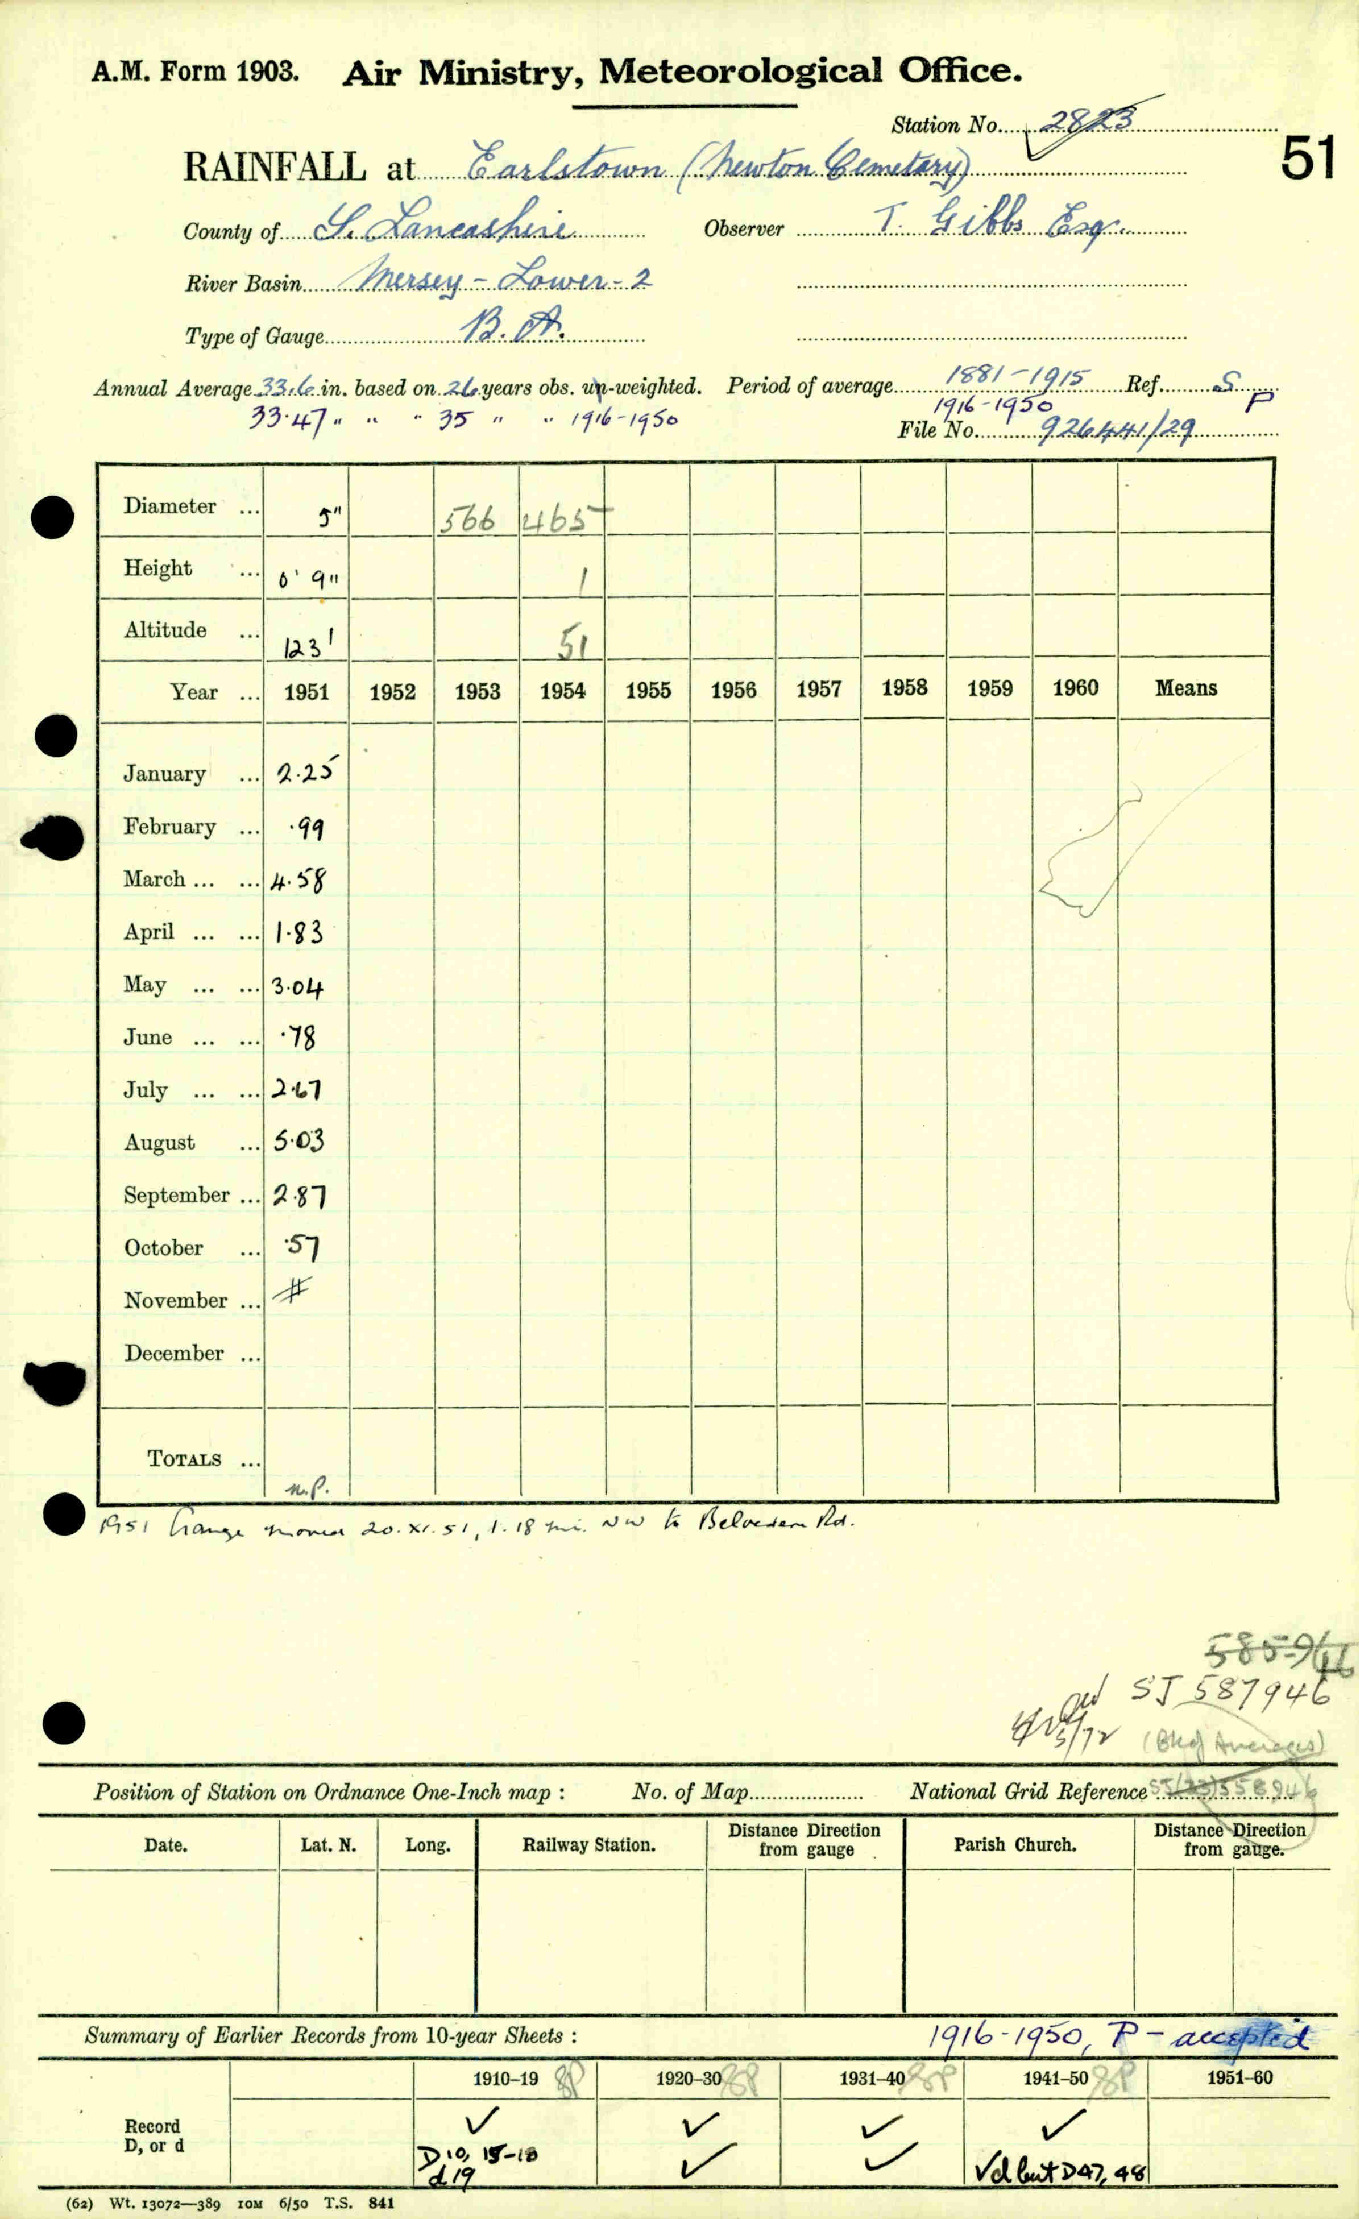 A.M. Form 1903. Air Ministry, Meteorological Office.
Station No. 2823
51
RAINFALL at Earlstown (Newton Cemetary)
County of S. Lancashire Observer T. Gibbs Esq.
River Basin Mersey - Lower - 2
Type of Gauge B. A.
Annual Average 33.6 in. based on 26 years obs. un-weighted. Period of average 1881-1915 Ref. S
33.47 " " " 35 " " 1916-1950 1916-1950 P
File No. 926441/29
Diameter ... 5" 566 465
Height ... 0' 9" 1
Altitude ... 123' 51
Year ... 1951 1952 1953 1954 1955 1956 1957 1958 1959 1960 Means
January ... 2.25
February ... .99
March ... ... 4.58
April ... ... 1.83
May ... ... 3.04
June ... ... .78
July ... ... 2.67
August ... 5.03
September ... 2.87
October ... .57
November ... #
December ...
TOTALS ...
n.P.
1951 Gauge moved 20.XI.51, 1.18 mi. NW to Belvedere Rd.
585946
SJ 587946
5/72 (Bkg Averages)
Position of Station on Ordnance One-Inch map : No. of Map National Grid Reference SJ(33)558946
Date. Lat. N. Long. Railway Station. Distance from gauge Direction Parish Church. Distance from gauge. Direction
Summary of Earlier Records from 10-year Sheets : 1916-1950, P - accepted
1910–19 1920–30 1931–40 1941–50 1951–60
Record ✓ ✓ ✓ ✓
D, or d D10, 15-18 ✓ ✓ √d but D47, 48
d19
(62) Wt. 13072—389 10M 6/50 T.S. 841